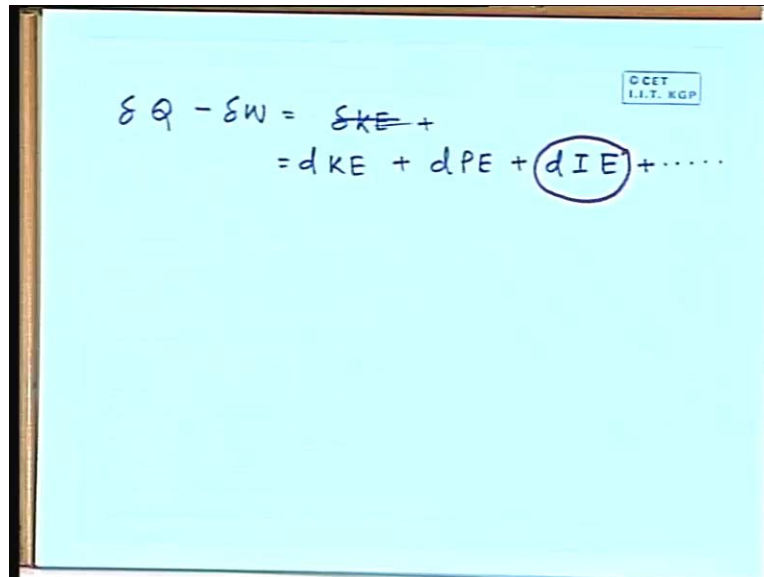 © CET
I.I.T. KGP
δQ - δW = ~~δKE~~ +
= dKE + dPE + dIE + .....